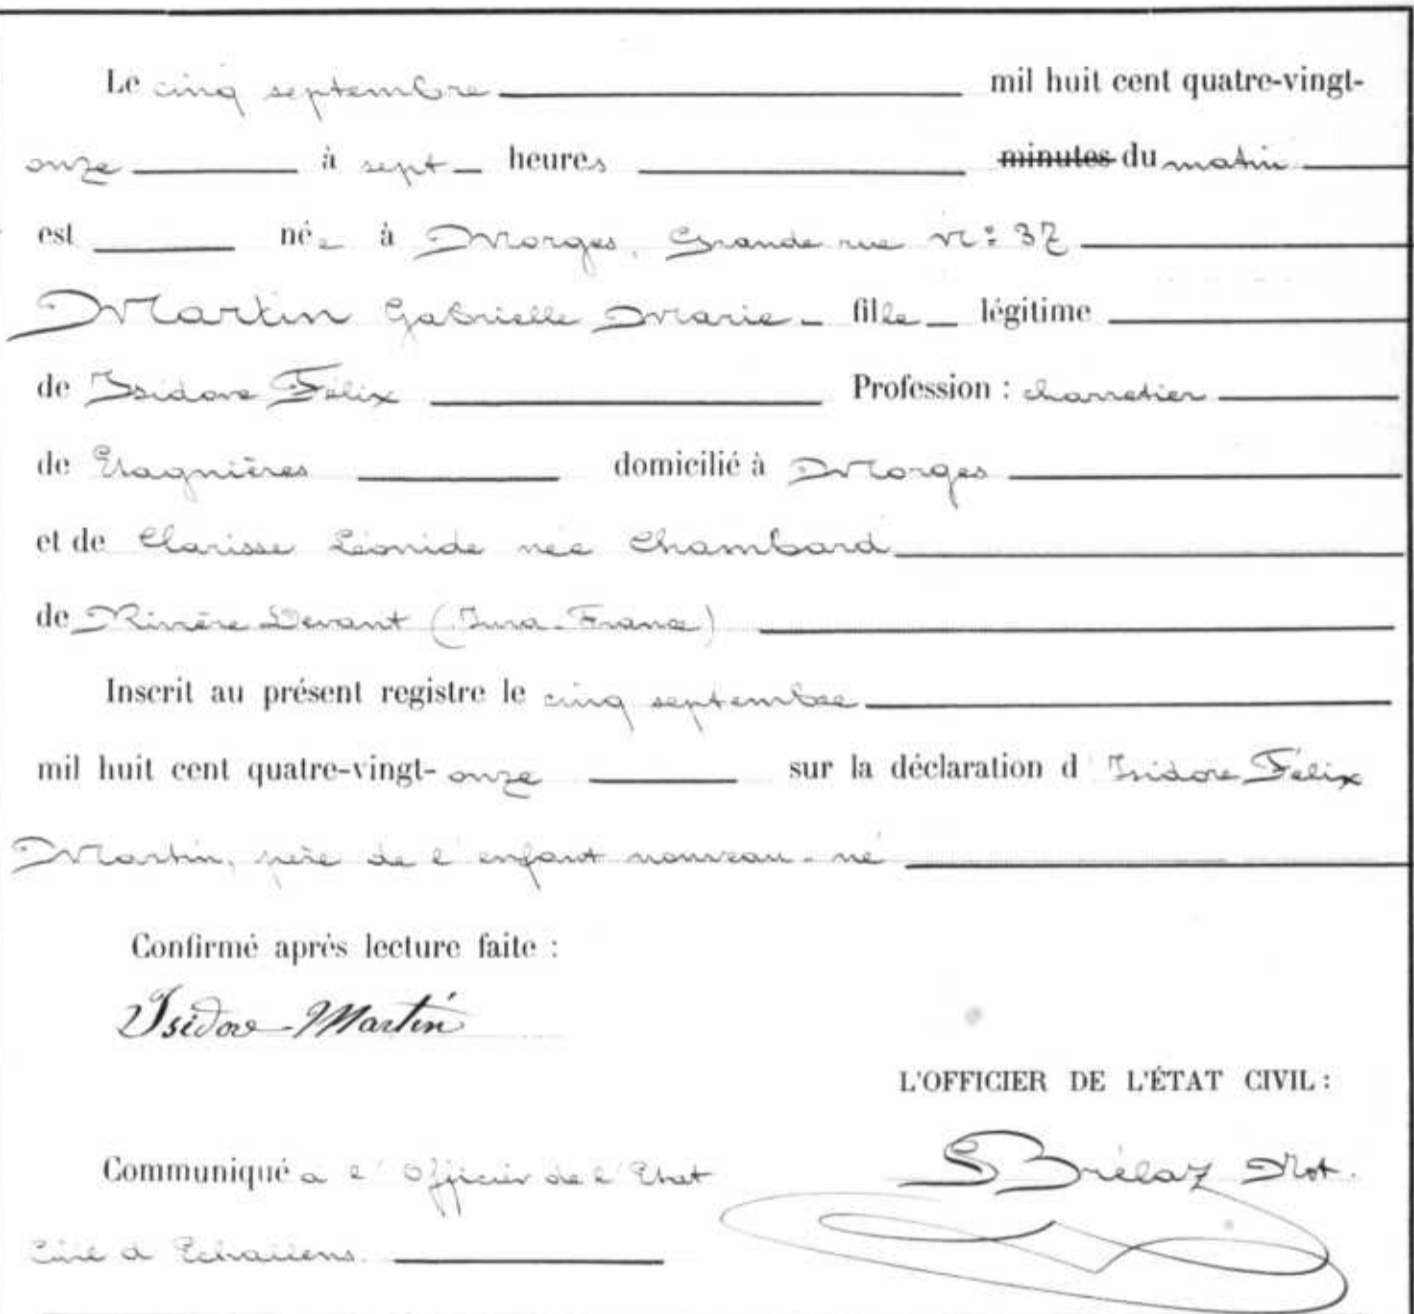 Le cinq septembre mil huit cent quatre-vingt-
onze à sept heures minutes du matin
est née à Morges, Grande rue No: 37
Martin Gabrielle Marie fille légitime
de Isidore Félix Profession : charretier
de Etagnières domicilié à Morges
et de Clarisse Léonide née Chambard
de Rivière Devant (Jura-France)
Inscrit au présent registre le cinq septembre
mil huit cent quatre-vingt-onze sur la déclaration d'Isidore Félix
Martin, père de l'enfant nouveau-né
Confirmé après lecture faite :
Isidore Martin
L'OFFICIER DE L'ÉTAT CIVIL :
S Brélaz Not.
Communiqué à l'Officier de l'Etat
Civil d'Echallens.